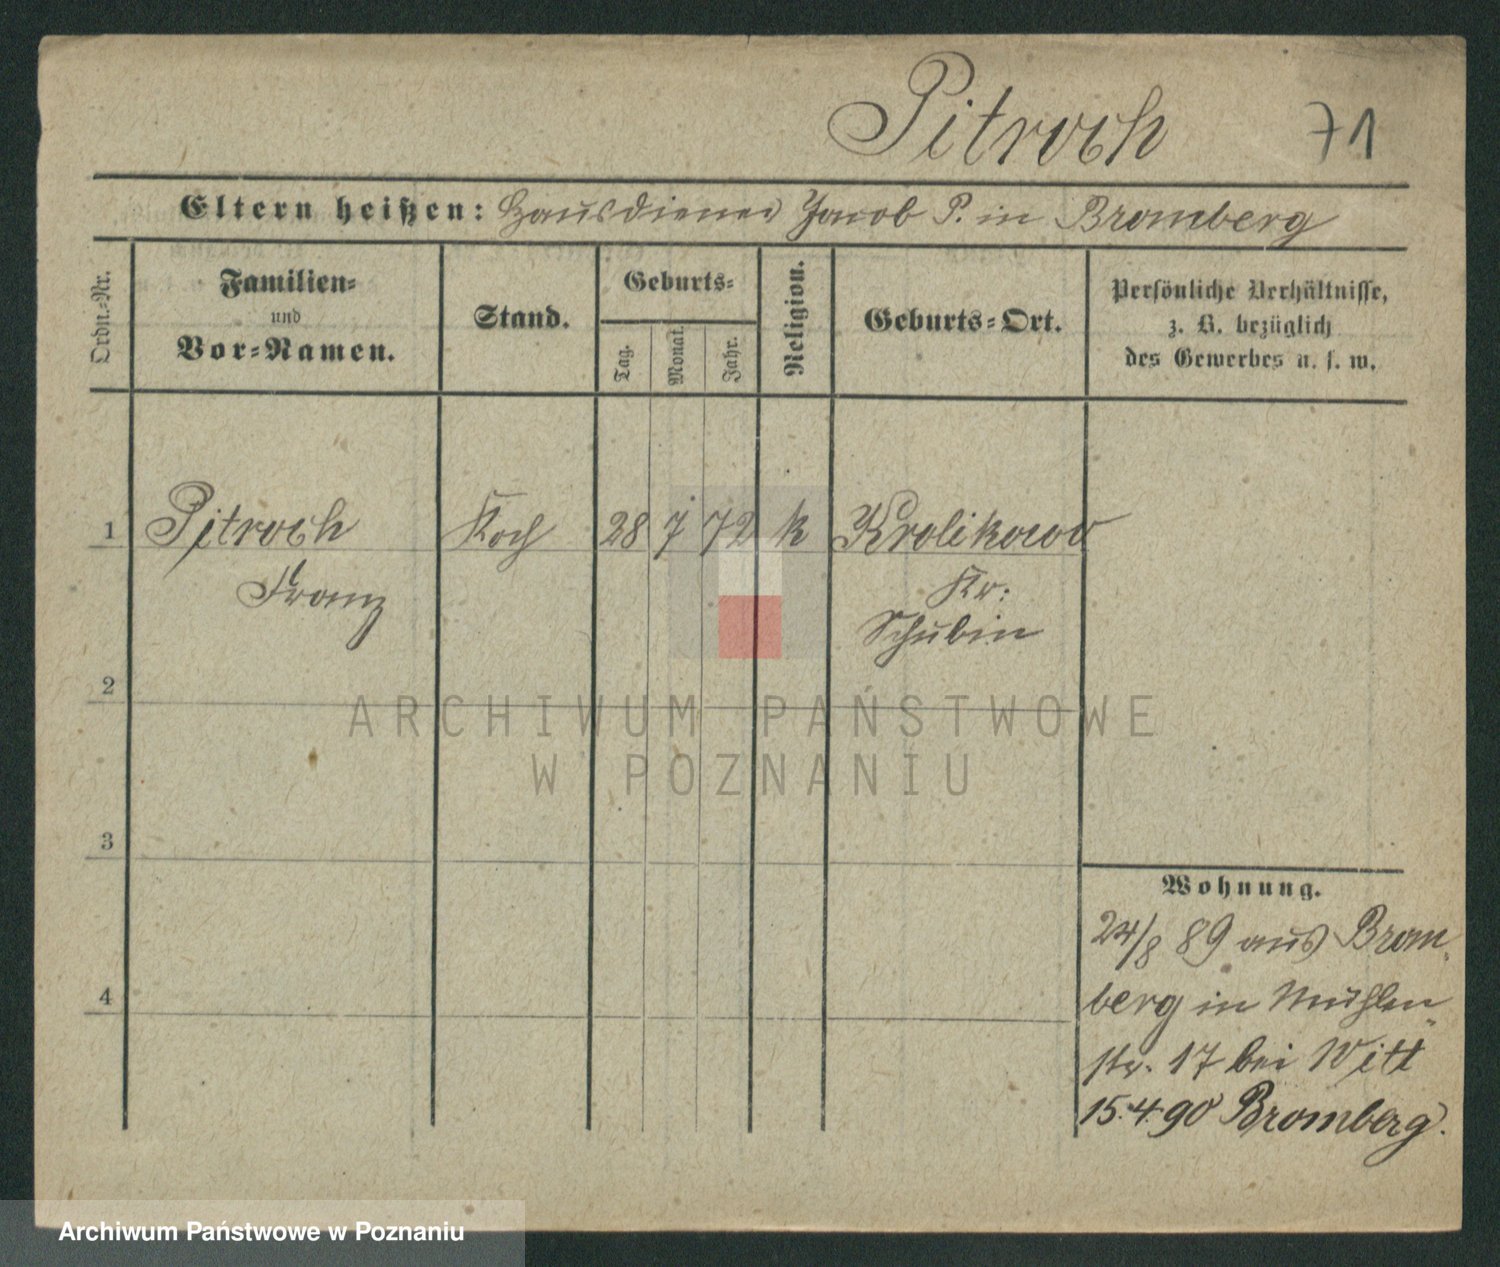 Pitroch 71
Eltern heißen: Hausdiener Jacob P. in Bromberg
Ordn.-Nr.
Familien-
und
Vor-Namen.
Stand.
Geburts-
Tag.
Monat.
Jahr.
Religion.
Geburts-Ort.
Persönliche Verhältnisse,
z. B. bezüglich
des Gewerbes u. s. w.
1 Pitroch Koch 28 7 72 k Krolikowo
Franz Kr:
Schubin
2
3
4
Wohnung.
24/8 89 aus Brom-
berg in Mühlen-
str. 17 bei Witt
15.4.90 Bromberg.
ARCHIWUM PAŃSTWOWE
W POZNANIU
Archiwum Państwowe w Poznaniu